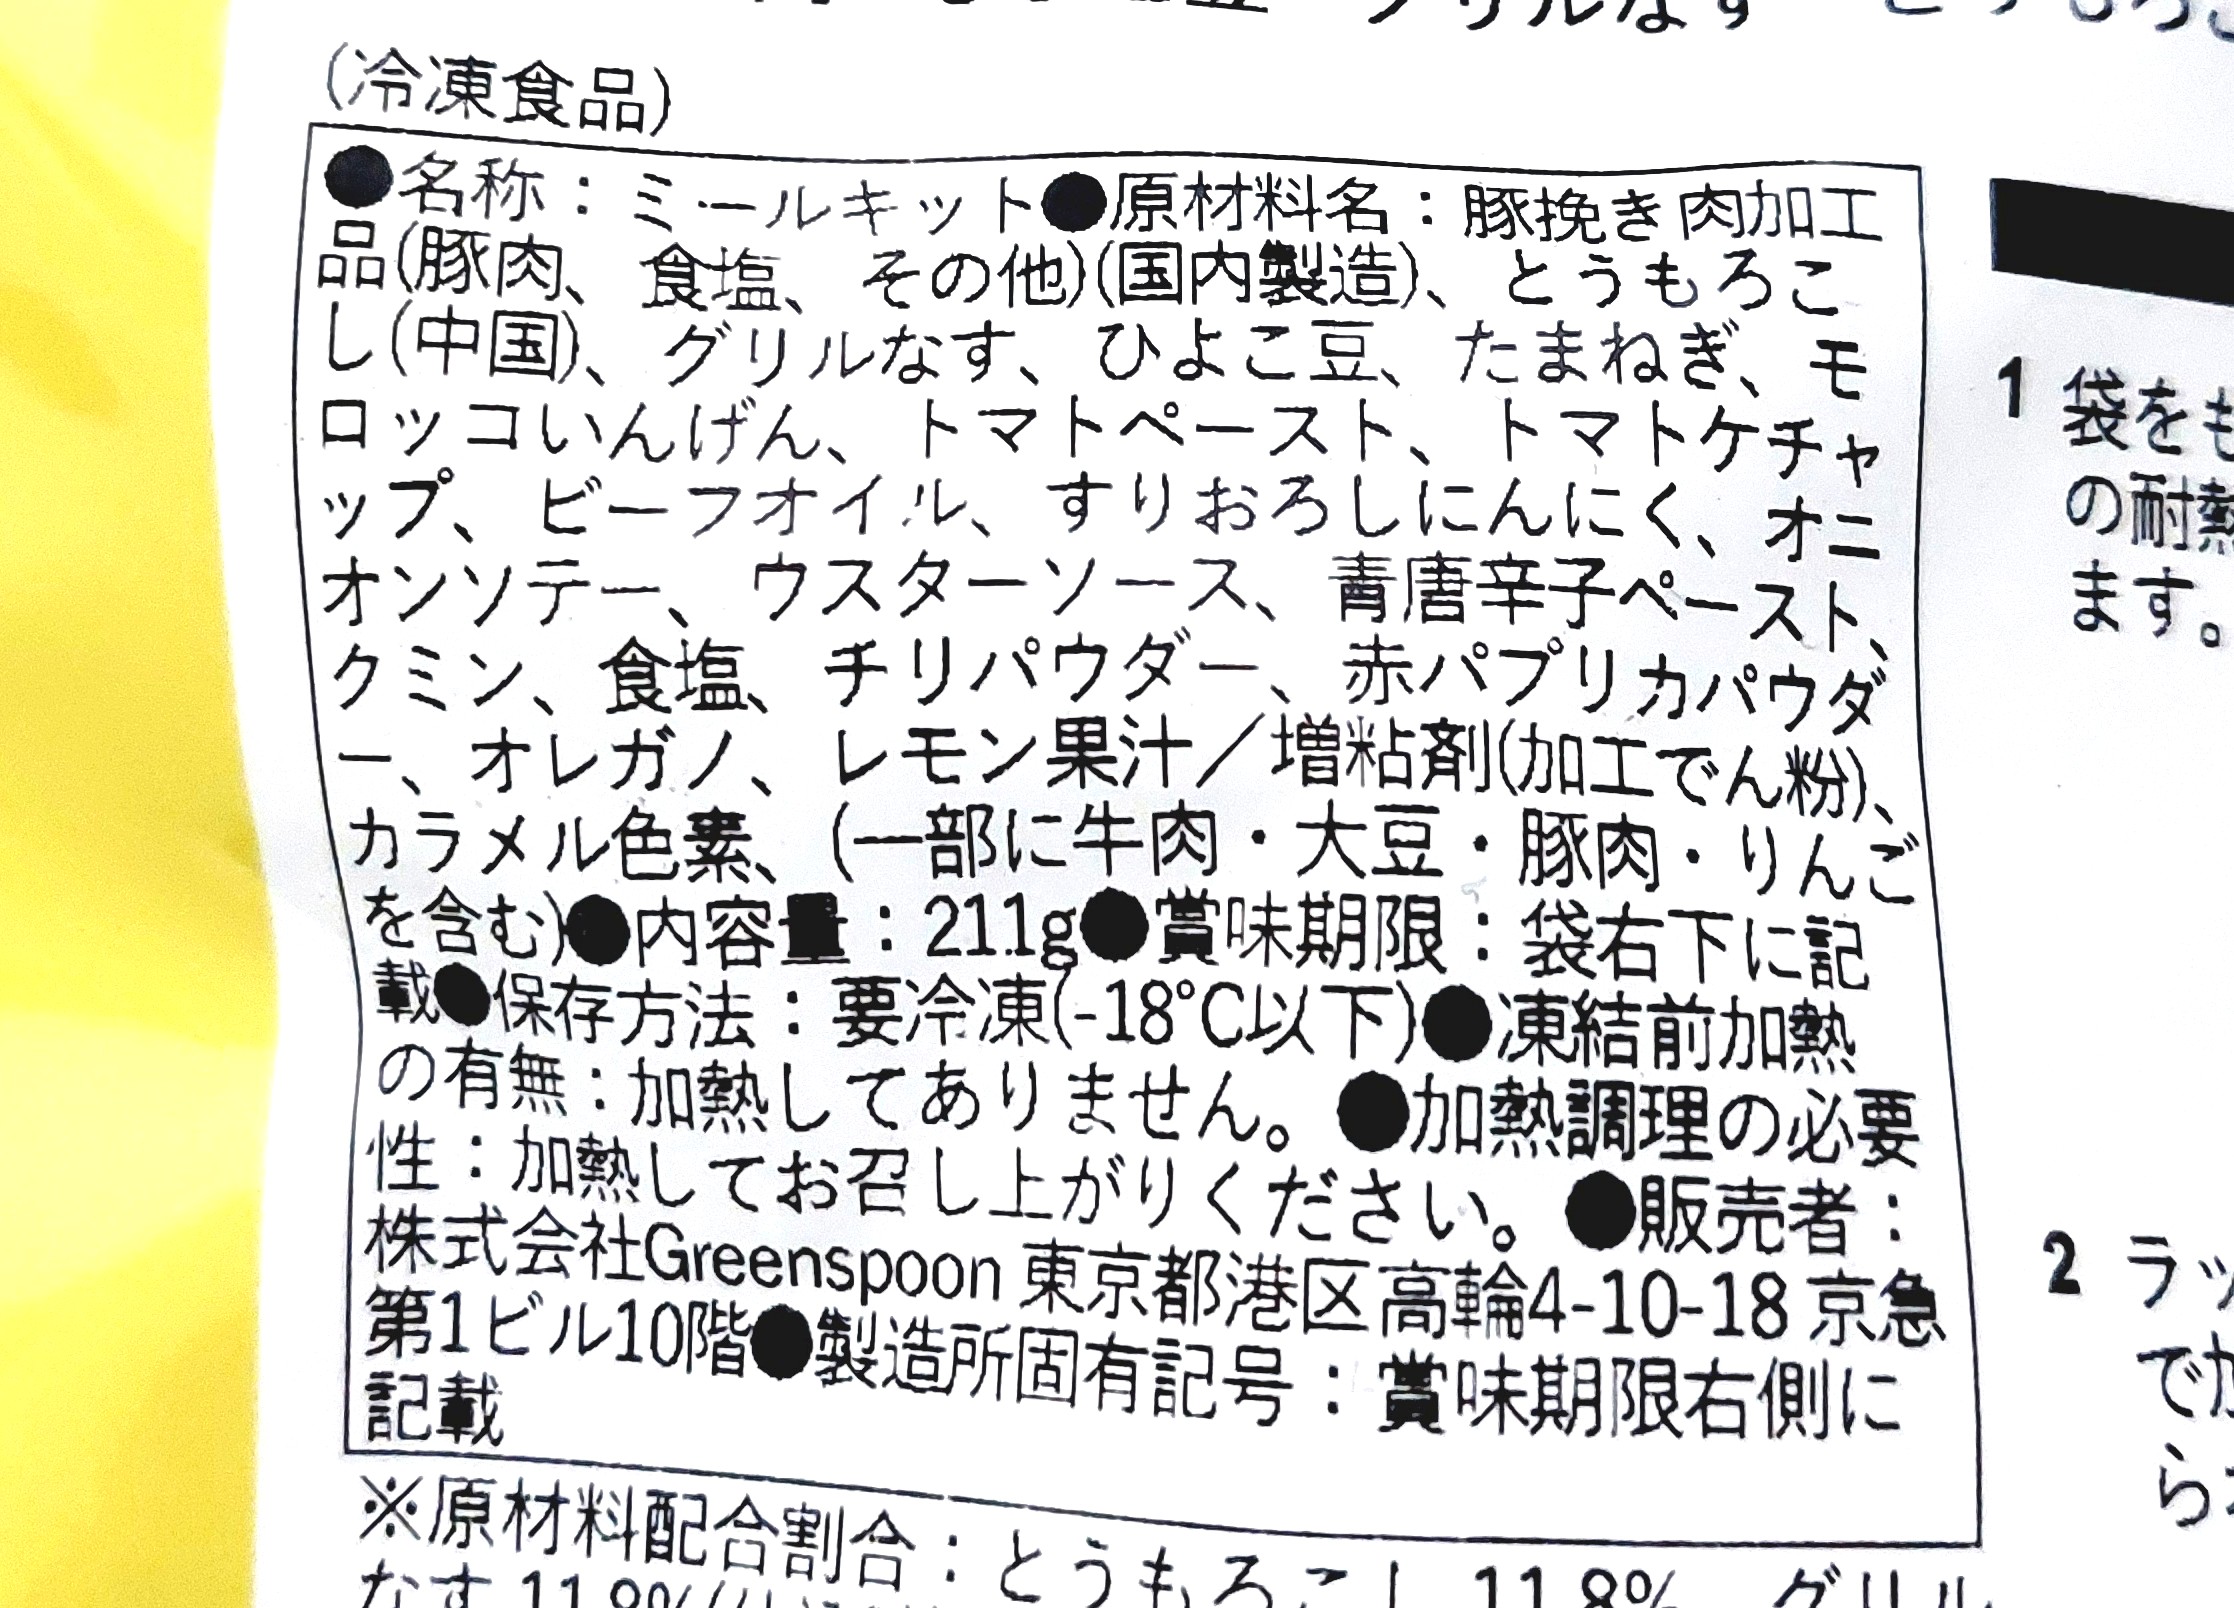 グリルなす
(冷凍食品)
●名称：ミールキット●原材料名：豚挽き肉加工
品(豚肉、食塩、その他)(国内製造)、とうもろこ
し(中国)、グリルなす、ひよこ豆、たまねぎ、モ
ロッコいんげん、トマトペースト、トマトケチャ
ップ、ビーフオイル、すりおろしにんにく、オニ
オンソテー、ウスターソース、青唐辛子ペースト、
クミン、食塩、チリパウダー、赤パプリカパウダ
ー、オレガノ、レモン果汁／増粘剤(加工でん粉)、
カラメル色素、(一部に牛肉・大豆・豚肉・りんご
を含む)●内容量：211g●賞味期限：袋右下に記
載●保存方法：要冷凍(-18℃以下)●凍結前加熱
の有無：加熱してありません。●加熱調理の必要
性：加熱してお召し上がりください。●販売者：
株式会社Greenspoon 東京都港区高輪4-10-18 京急
第1ビル10階●製造所固有記号：賞味期限右側に
記載
※原材料配合割合：とうもろこし 11.8%、グリル
なす 11.8%
1 袋をも
の耐熱
ます。
2 ラッ
で加
ら